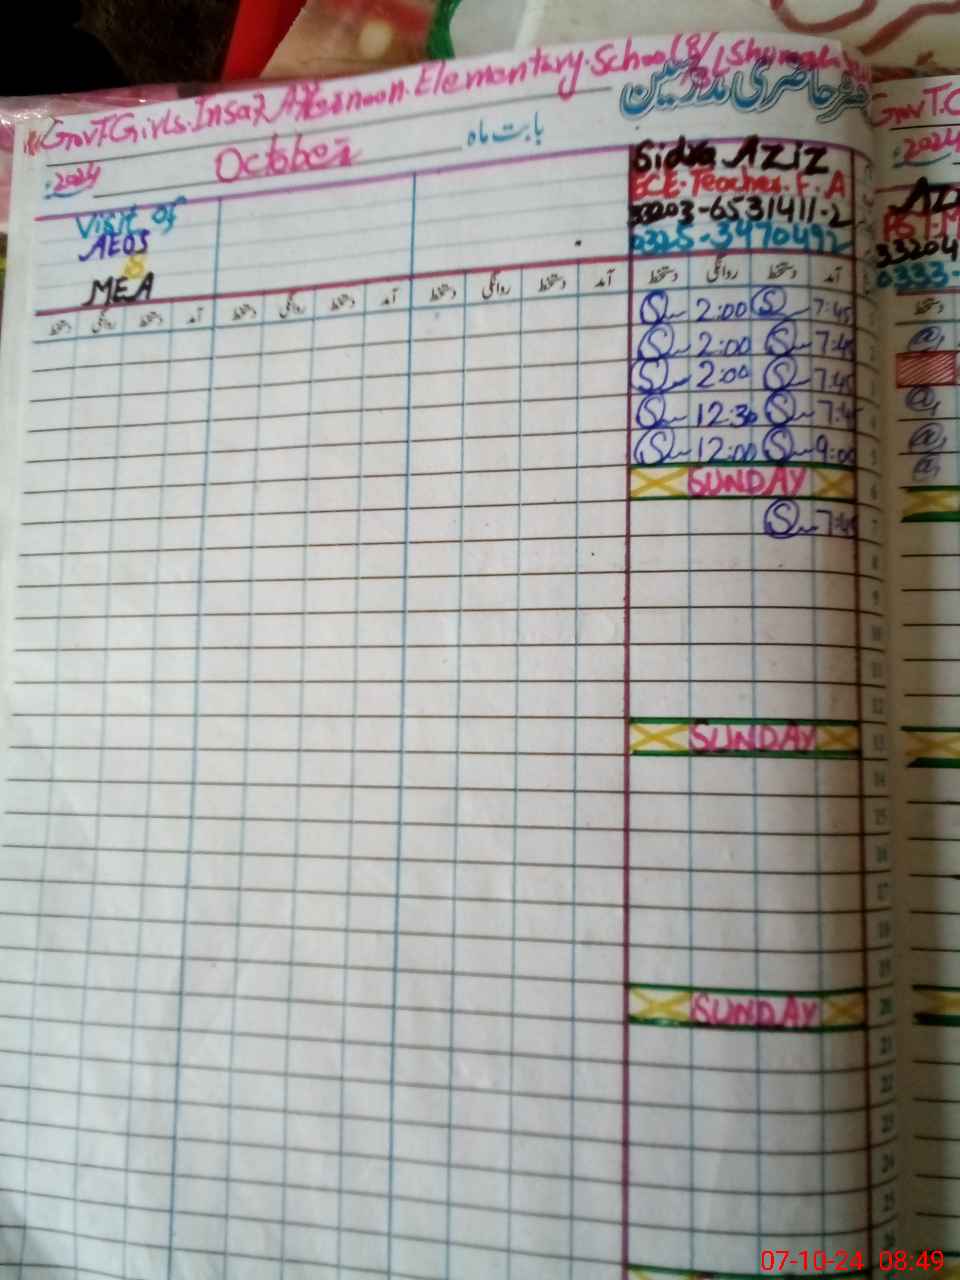 GovT.Girls.Insaf Afternoon.Elementary.School
حاضری مدرسین
:2024
October
بابت ماه
Visit of
AEOS
&
MEA
Sidra Aziz
ECE.Teacher.F.A
33203-6531411-2
0325-3470492
دستخط روانگی دستخط آمد دستخط روانگی دستخط آمد دستخط روانگی دستخط آمد دستخط روانگی دستخط آمد
S 2:00 S 7:45 1
S 2:00 S 7:45 2
S 2:00 S 7:45 3
S 12:30 S 7:45 4
S 12:00 S 9:00 5
SUNDAY 6
S 7:45 7
8
9
10
11
12
SUNDAY 13
14
15
16
17
18
19
SUNDAY 20
21
22
23
24
25
26
GovT.G
:2024
33204
0333-
دستخط
07-10-24 08:49